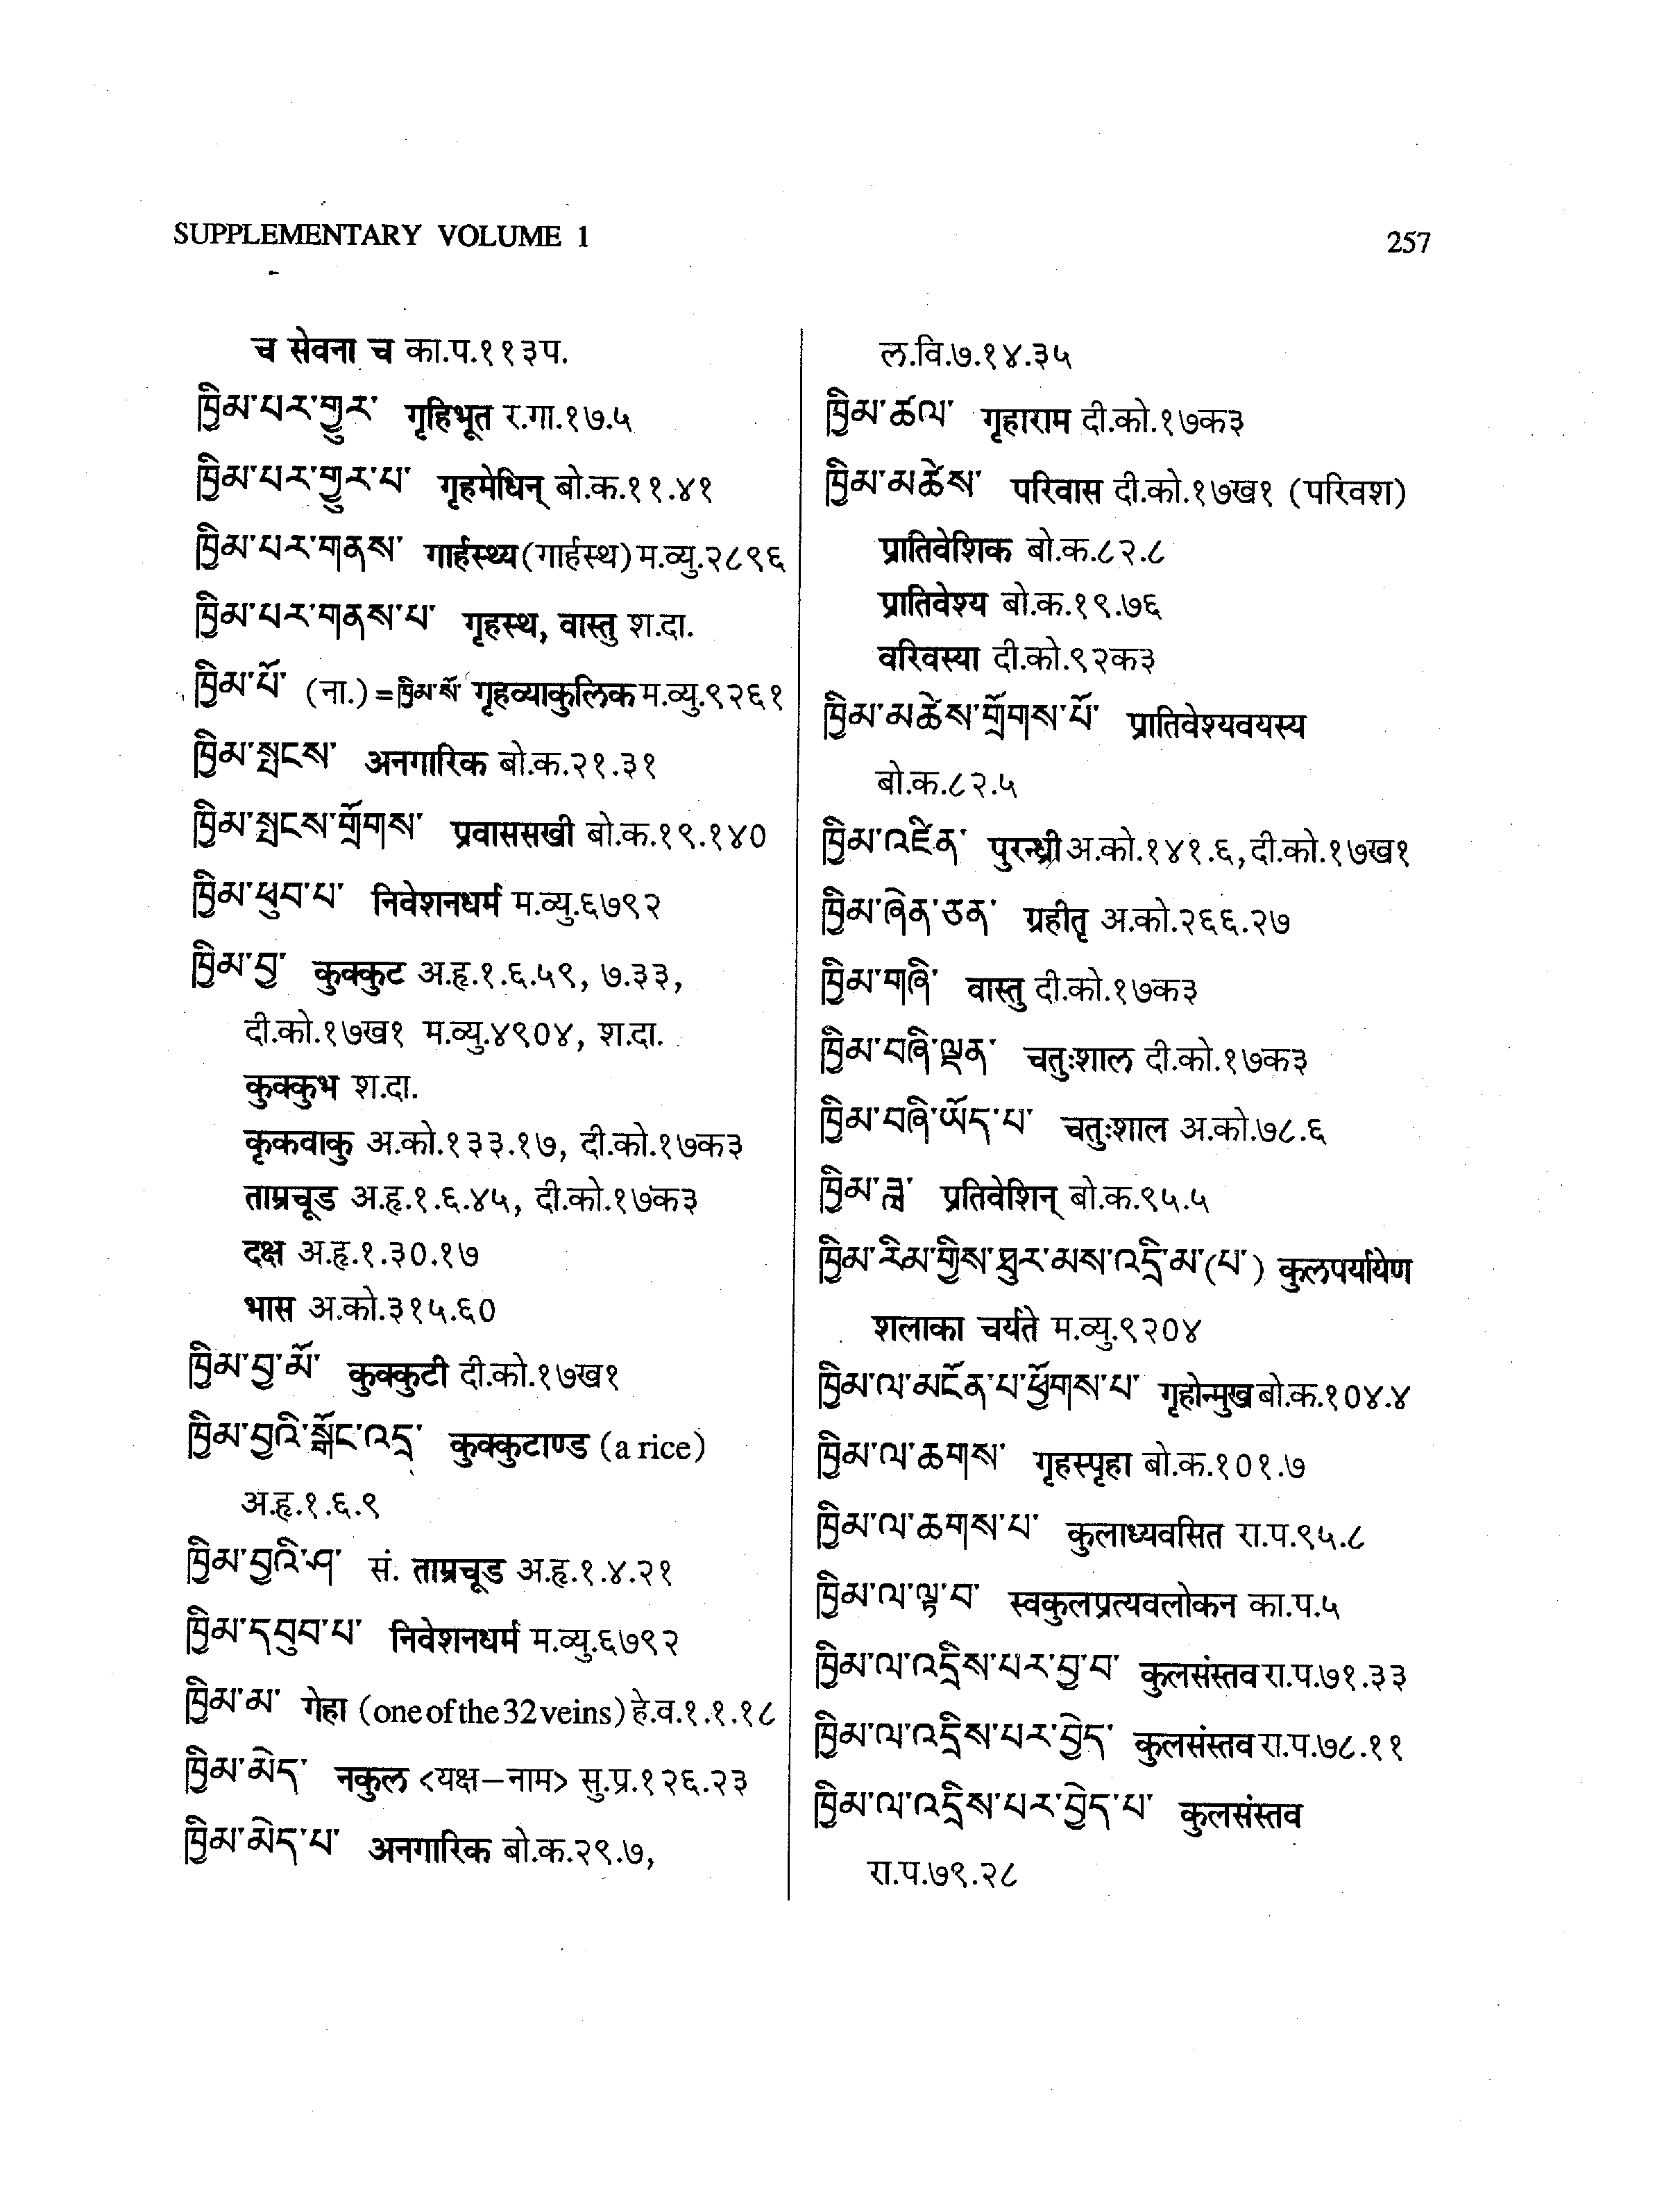 SUPPLEMENTARY VOLUME 1
257
च सेवना च का.प.११३प.
ཁྱིམ་པར་གྱུར་ गृहिभूत र.गा.१७.५
ཁྱིམ་པར་གྱུར་པ་ गृहमेधिन् बो.क.११.४१
ཁྱིམ་པར་གནས་ गार्हस्थ्य(गार्हस्थ) म.व्यु.२८९६
ཁྱིམ་པར་གནས་པ་ गृहस्थ, वास्तु श.दा.
ཁྱིམ་པོ་ (ना.)=ཁྱིམ་སོ་ गृहव्याकुलिक म.व्यु.९२६१
ཁྱིམ་སྤངས་ अनगारिक बो.क.२१.३१
ཁྱིམ་སྤངས་གྲོགས་ प्रवाससखी बो.क.१९.१४०
ཁྱིམ་ཕུབ་པ་ निवेशनधर्म म.व्यु.६७९२
ཁྱིམ་བྱ་ कुक्कुट अ.हृ.१.६.५९, ७.३३,
दी.को.१७ख१ म.व्यु.४९०४, श.दा.
कुक्कुभ श.दा.
कृकवाकु अ.को.१३३.१७, दी.को.१७क३
ताम्रचूड अ.हृ.१.६.४५, दी.को.१७क३
दक्ष अ.हृ.१.३०.१७
भास अ.को.३१५.६०
ཁྱིམ་བྱ་མོ་ कुक्कुटी दी.को.१७ख१
ཁྱིམ་བྱའི་སྒོང་འདྲ་ कुक्कुटाण्ड (a rice)
अ.हृ.१.६.९
ཁྱིམ་བྱའི་ཤ་ सं. ताम्रचूड अ.हृ.१.४.२१
ཁྱིམ་དབུབ་པ་ निवेशनधर्म म.व्यु.६७९२
ཁྱིམ་མ་ गेहा (one of the 32 veins) हे.व.१.१.१८
ཁྱིམ་མེད་ नकुल <यक्ष–नाम> सु.प्र.१२६.२३
ཁྱིམ་མེད་པ་ अनगारिक बो.क.२९.७,
ल.वि.७.१४.३५
ཁྱིམ་ཚལ་ गृहाराम दी.को.१७क३
ཁྱིམ་མཚེས་ परिवास दी.को.१७ख१ (परिवश)
प्रातिवेशिक बो.क.८२.८
प्रातिवेश्य बो.क.१९.७६
वरिवस्या दी.को.९२क३
ཁྱིམ་མཚེས་གྲོགས་པོ་ प्रातिवेश्यवयस्य
बो.क.८२.५
ཁྱིམ་འཛིན་ पुरन्ध्री अ.को.१४१.६, दी.को.१७ख१
ཁྱིམ་ཞེན་ཅན་ ग्रहीतृ अ.को.२६६.२७
ཁྱིམ་གཞི་ वास्तु दी.को.१७क३
ཁྱིམ་བཞི་ལྡན་ चतुःशाल दी.को.१७क३
ཁྱིམ་བཞི་ཡོད་པ་ चतुःशाल अ.को.७८.६
ཁྱིམ་ཟླ་ प्रतिवेशिन् बो.क.९५.५
ཁྱིམ་རིམ་གྱིས་ཐུར་མས་འདྲིམ་(པ་) कुलपर्यायेण
शलाका चर्यते म.व्यु.९२०४
ཁྱིམ་ལ་མངོན་པ་ཕྱོགས་པ་ गृहोन्मुख बो.क.१०४.४
ཁྱིམ་ལ་ཆགས་ गृहस्पृहा बो.क.१०१.७
ཁྱིམ་ལ་ཆགས་པ་ कुलाध्यवसित रा.प.९५.८
ཁྱིམ་ལ་ལྟ་བ་ स्वकुलप्रत्यवलोकन का.प.५
ཁྱིམ་ལ་འདྲིས་པར་བྱ་བ་ कुलसंस्तव रा.प.७१.३३
ཁྱིམ་ལ་འདྲིས་པར་བྱེད་ कुलसंस्तव रा.प.७८.११
ཁྱིམ་ལ་འདྲིས་པར་བྱེད་པ་ कुलसंस्तव
रा.प.७९.२८